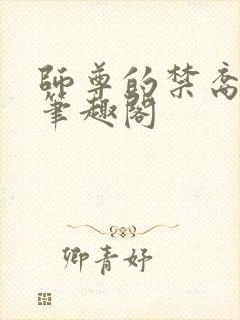 師尊的禁脔
筆趣閣
卿青妤